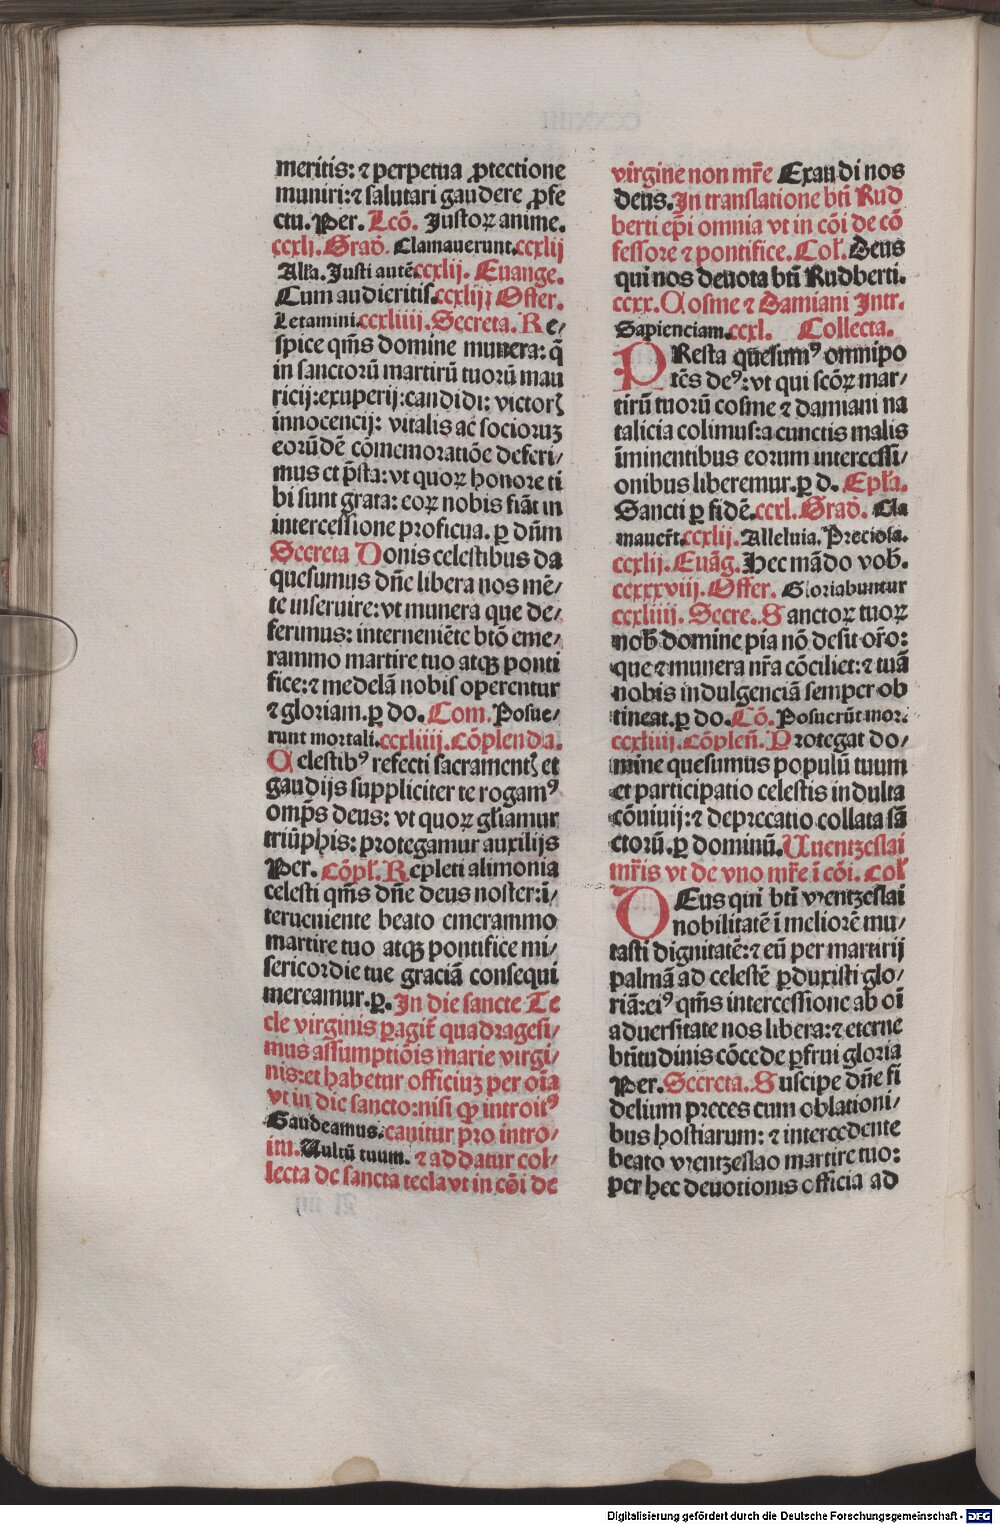 meritis: ⁊ perpetua ꝓtectione
muniri: ⁊ salutari gaudere ꝓfe
ctu. Per. Lcō. Justoꝝ anime.
ccxlj. Grad̄. Clamauerunt. ccxlij
Alla. Justi autē ccxlij. Euange.
Cum audieritis. ccxliij Offer.
Letamini. ccxliiij. Secreta. Re⸗
spice qm̄s domine munera: q̄
in sanctorū martirū tuorū mau
ricij: exuperij: candidi: victorꝭ
innocencij: vitalis ac socioruꝫ
eorūdē cōmemoratiōe deferi⸗
mus et p̄sta: vt quoꝝ honore ti
bi sunt grata: eoꝝ nobis fiāt in
intercessione proficua. ꝑ dn̄m
Secreta Donis celestibus da
quesumus dn̄e libera nos mē⸗
te inseruire: vt munera que de⸗
ferimus: interueniēte btō eme⸗
rammo martire tuo atqꝫ ponti
fice: ⁊ medelā nobis operentur
⁊ gloriam. ꝑ do. Com. Posue⸗
runt mortali. ccxliiij. Cōplenda.
Celestibꝰ refecti sacramentꝭ et
gaudijs suppliciter te rogamꝰ
omp̄s deus: vt quoꝝ gl̄iamur
triūphis: protegamur auxilijs
Per. Cōpl. Repleti alimonia
celesti qm̄s dn̄e deus noster: ī⸗
terueniente beato emerammo
martire tuo atqꝫ pontifice mi⸗
sericordie tue graciā consequi
mereamur. ꝑ. In die sancte Te
cle virginis ꝑagit̄ quadragesi⸗
mus assumptiōis marie virgi⸗
nis: et habetur officiuꝫ per oīa
vt in die sancto: nisi ꝙ introitꝰ
Gaudeamus. canitur pro intro⸗
itu. Vultū tuum. ⁊ addatur col⸗
lecta de sancta tecla vt in cōi de
virgine non mr̄e Exaudi nos
deus. In translatione bti Rud
berti ep̄i omnia vt in cōi de cō
fessore ⁊ pontifice. Col. Deus
qui nos deuota bti Rudberti.
ccxx. Cosme ⁊ Damiani Intr.
Sapienciam. ccxl. Collecta.
PResta quesumꝰ omnipo
tēs deꝰ: vt qui scōꝝ mar⸗
tirū tuorū cosme ⁊ damiani na
talicia colimus: a cunctis malis
īminentibus eorum intercessi⸗
onibus liberemur. ꝑ d. Epl̄a.
Sancti ꝑ fidē. ccxl. Grad̄. Cla
mauer̄t. ccxlij. Alleluia. Preciosa.
ccxlij. Euāg. Hec mādo vob̄.
ccxxxviij. Offer. Gloriabuntur
ccxliiij. Secre. Sanctoꝝ tuoꝝ
nob̄ domine pia nō desit or̄o:
que ⁊ munera nr̄a cōciliet: ⁊ tuā
nobis indulgenciā semper ob
tineat. ꝑ do. Cō. Posuerūt mor.
ccxliiij. Cōplen̄. Protegat do⸗
mine quesumus populū tuum
et participatio celestis indulta
cōuiuij: ⁊ deprecatio collata sā
ctorū. ꝑ dominū. Wentzeslai
mr̄is vt de vno mr̄e ī cōi. Col
DEus qui bti wentzeslai
nobilitatē ī meliorē mu⸗
tasti dignitatē: ⁊ eū per martirij
palmā ad celestē ꝑduxisti glo⸗
riā: eiꝰ qm̄s intercessione ab oī
aduersitate nos libera: ⁊ eterne
btitudinis cōcede ꝑfrui gloria
Per. Secreta. Suscipe dn̄e fi
delium preces cum oblationi⸗
bus hostiarum: ⁊ intercedente
beato wentzeslao martire tuo:
per hec deuotionis officia ad
Digitalisierung gefördert durch die Deutsche Forschungsgemeinschaft - DFG